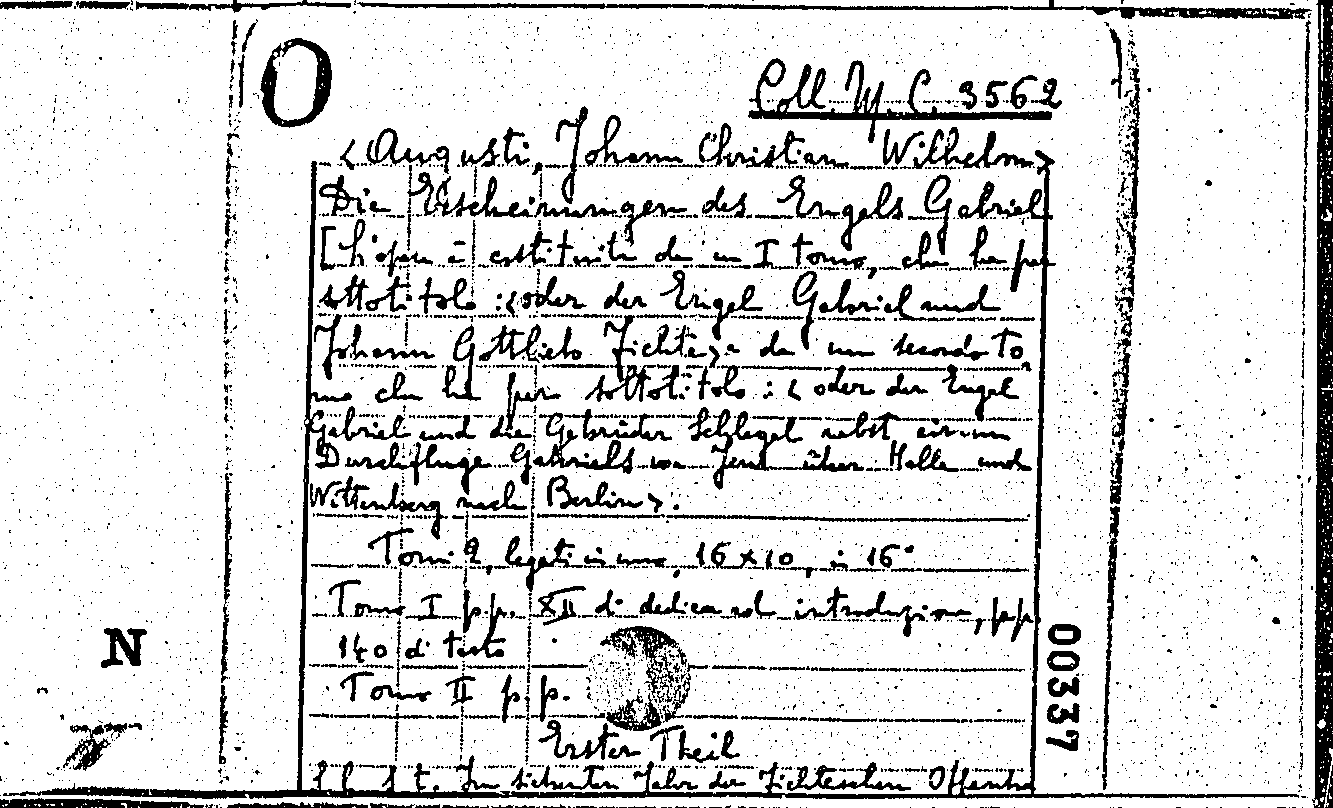 O
Coll. M. C. 3562
<Augusti, Johann Christian Wilhelm>
Die Erscheinungen des Engels Gabriel
[L'opera è costituita da un I tomo, che ha per
sottotitolo : <oder der Engel Gabriel und
Johann Gottlieb Fichte> e da un secondo to,
mo che ha per sottotitolo : < oder der Engel
Gabriel und die Gebrüder Schlegel nebst einem
Durchfluge Gabriels von Jena über Halle und
Wittenberg nach Berlin>.
Tomi 2, legati in uno, 16 x 10, in 16°
Tomo I p.p. XII di dedica ed introduzione, pp.
140 di testo
Tomo II p.p.
Erster Theil
s. l. s. t. Im siebenten Jahr der Fichteschen Offenba
N
00337